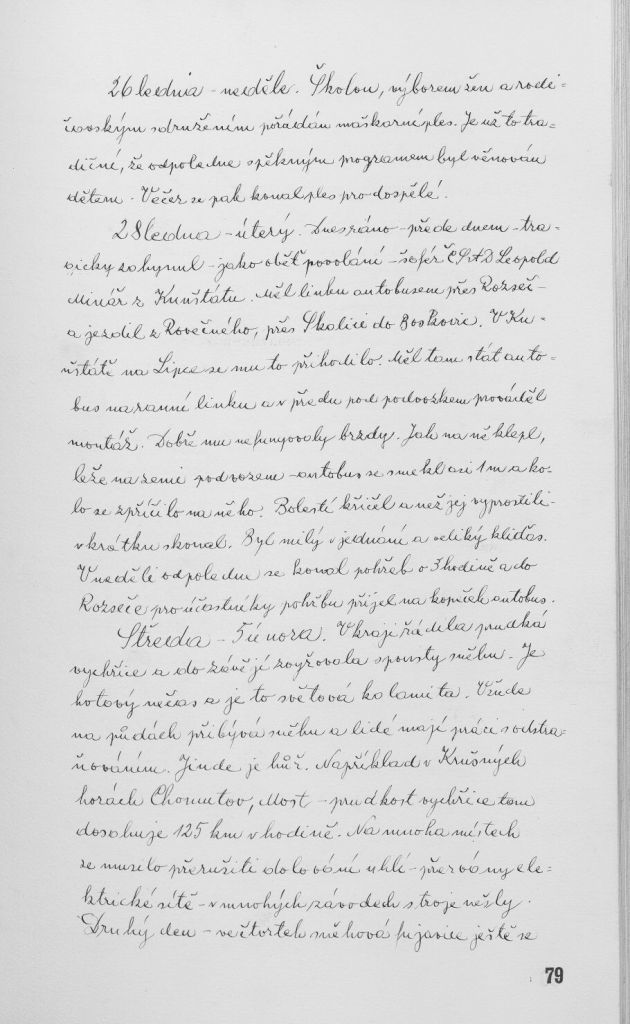 26 ledna - neděle. Školou, výborem žen a rodi-
čovským sdružením pořádán maškarní ples. Je už to tra-
diční, že odpoledne s pěkným programem byl věnován
dětem. Večer se pak konal ples pro dospělé.
28 ledna - úterý. Dnes ráno - přede dnem - tra-
gicky zahynul - jako oběť povolání - šofér ČSAD Leopold
Minář z Kunštátu. Měl linku autobusem přes Rozseč -
a jezdil z Rovečného, přes Skalici do Boskovic. V Ku-
nštátě na Lipce se mu to přihodilo. Měl tam stát auto-
bus na ranní linku a v předu pod podvozkem prováděl
montáž. Dobře mu nefungovaly brzdy. Jak na ně klepl,
leže na zemi pod vozem - autobus se smekl asi 1 m a ko-
lo se zpříčilo na něho. Bolestí křičel a než jej vyprostili -
v krátku skonal. Byl milý v jednání a veliký kliďas.
V neděli odpoledne se konal pohřeb o 3 hodině a do
Rozseče pro účastníky pohřbu přijel na kopeček autobus.
Středa - 5 února. V kraji řádila prudká
vychřice a do závějí zvyřovala spousty sněhu. Je
hotový nečas a je to světová kalamita. Všude
na půdách přibývá sněhu a lidé mají práci s odstra-
ňováním. Jinde je hůř. Například v Krušných
horách Chomutov, Most - prudkost vychřice tam
dosahuje 125 km v hodině. Na mnoha místech
se musilo přerušiti dolování uhlí - přervány ele-
ktrické sítě - v mnohých závodech stroje nešly.
Druhý den - ve čtvrtek sněhová fujavice ještě se
79